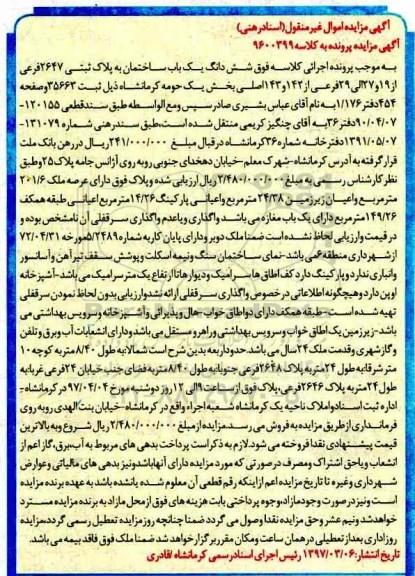 آگهی مزایده اموال غیر منقول(اسناد رهنی)
آگهی مزایده پرونده به کلاسه ۹۶۰۰۳۹۹
به موجب پرونده اجرائی کلاسه فوق شش دانگ یک باب ساختمان به پلاک ثبتی ۲۶۴۷فرعی
از۱۹و۲۷الی۲۹فرعی از۱۴۲و۱۴۳اصلی بخش یک حومه کرمانشاه ذیل ثبت ۳۵۶۶۳وصفحه
۴۵۴دفتر۱/۱۷۶به نام آقای عباس بشیری صادر سپس ومع الواسطه طبق سندقطعی ۱۲۰۱۵۵-
۹۰/۰۴/۰۷دفتر۳۶به آقای چنگیز کریمی منتقل شده است،طبق سندرهنی شماره ۱۳۱۰۷۹-
۱۳۹۱/۰۵/۰۷دفترخانه شماره۳۶کرمانشاه درقبال مبلغ ۲۴۱/۰۰۰/۰۰۰ریال دررهن بانک ملت
قرارگرفته به آدرس کرمانشاه-شهرک معلم-خیابان دهخدای جنوبی روبه روی آژانس جامه پلاک۲۵وطبق
نظرکارشناس رسمی به مبلغ ۲/۴۸۰/۰۰۰/۰۰۰ریال ارزیابی شده وپلاک فوق دارای عرصه ملک ۲۰۱/۶
مترمربع واعیان زیرزمین ۲۴/۳۸مترمربع واعیانی پارکینگ ۱۴/۲۶مترمربع اعیانی طبقه همکف
۱۴۹/۲۶مترمربع دارای یک باب مغازه می باشد-واگذاری ویاعدم واگذاری سرقفلی آن نامشخص بوده و
در قیمت وارزیابی لحاظ نشده است ضمنا ملک دوبر ودارای پایان کاربه شماره۵/۲۴۸۹مورخه ۷۲/۰۴/۳۱
ازشهرداری منطقه۶می باشد-نمای ساختمان سنگ ونیمه اسکلت وپوشش سقف تیرآهن و آسانسور
وانباری نداردوپارکینگ دارد کف اطاق ها سرامیک ودیوارها تاارتفاع یک مترسرامیک می باشد-آشپزخانه
اوپن دارد وهیچگونه اطلاعاتی درخصوص واگذاری سرقفلی ارائه نشدوارزیابی بدون لحاظ نمودن سرقفلی
تهیه شده است-طبقه همکف دارای دواطاق خواب-هال وپذیرائی وآشپزخانه وسرویس بهداشتی می
باشد-زیرزمین یک اطاق خواب وسرویس بهداشتی وراهرو مستقل می باشدودارای انشعابات آب وبرق وتلفن
وگازشهری وقدمت ملک ۲۴سال می باشد.حدوداربعه بدین شرح است شمالابه طول ۸/۴۰متربه کوچه ۱۰
متر شرقابه طول ۲۴متربه پلاک ۲۶۴۸فرعی جنوبابه طول ۸/۴۰متربه فضای جنب خیابان ۲۴فرعی غربابه
طول ۲۴متربه پلاک ۲۶۴۶فرعی.پلاک فوق ازساعت ۹الی ۱۲ روز دوشنبه مورخ ۹۷/۰۴/۰۴ در کرمانشاه-
اداره ثبت اسنادواملاک ناحیه یک کرمانشاه شعبه اجراء واقع در کرمانشاه-خیابان بنت الهدی روبه روی
فرمانداری ازطریق مزایده به فروش می رسد.مزایده ازمبلغ ۲/۴۸۰/۰۰۰/۰۰۰ریال شروع وبه بالاترین
قیمت پیشنهادی نقدافروخته می شود.لازم به ذکراست پرداخت بدهی های مربوط به آب،برق،گازاعم از
انشعاب ویاحق اشتراک ومصرف درصورتی که مورد مزایده دارای آنهاباشدونیزبدهی های مالیاتی وعوارض
شهرداری وغیره تا تاریخ مزایده اعم ازاینکه رقم قطعی آن معلوم شده یانشده باشد به عهده برنده مزایده
است ونیزدرصورت وجودمازاد،وجوه پرداختی بابت هزینه های فوق ازمحل مازاد به برنده مزایده مسترد
خواهدشد ونیم عشروحق مزایده نقدا وصول می گردد ضمنا چنانچه روزمزایده تعطیل رسمی گرددمزایده
روزاداری بعدازتعطیلی درهمان ساعت ومکان مقرربرگزارخواهدشد ضمنا ملک فوق فاقد بیمه می باشد.
تاریخ انتشار:۱۳۹۷/۰۳/۰۶ رئیس اجرای اسنادرسمی کرمانشاه/قادری